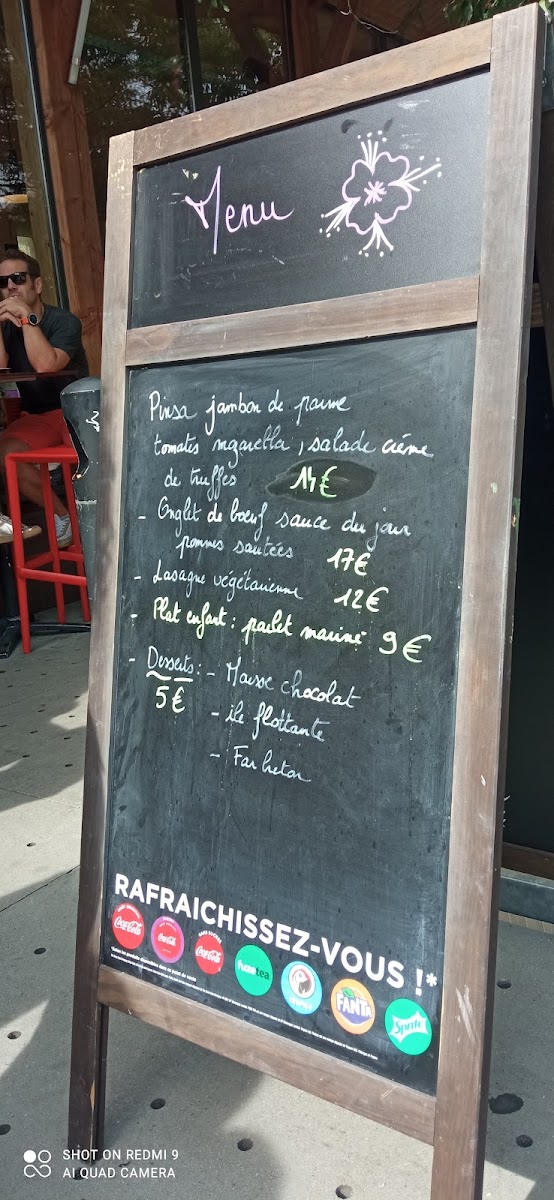 Menu
Pinsa jambon de parme
tomates mozarella, salade crème
de truffes 14€
- Onglet de bœuf sauce du jour
pommes sautées 17€
- Lasagne végétarienne 12€
- Plat enfant : poulet mariné 9€
- Desserts : - Mousse chocolat
5€ - île flottante
- Far breton
RAFRAICHISSEZ-VOUS !*
Coca-Cola Coca-Cola SANS SUCRES Coca-Cola fuzetea FANTA Sprite
SHOT ON REDMI 9
AI QUAD CAMERA